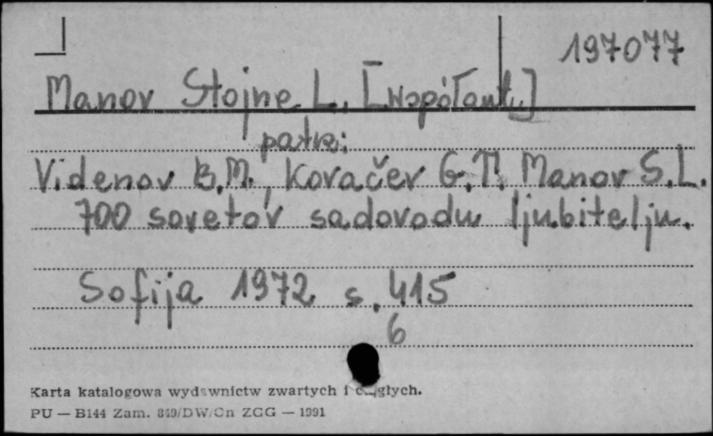 197077
Manov Stojne L. [współaut.]
patrz:
Videnov B.M., Kovačev G.T. Manov S.L.
700 sovetov sadovodu ljubitelju.
Sofija 1972 s. 415
6
Karta katalogowa wydawnictw zwartych i ciągłych.
PU — B144 Zam. 849/DW/Cn ZGG — 1991